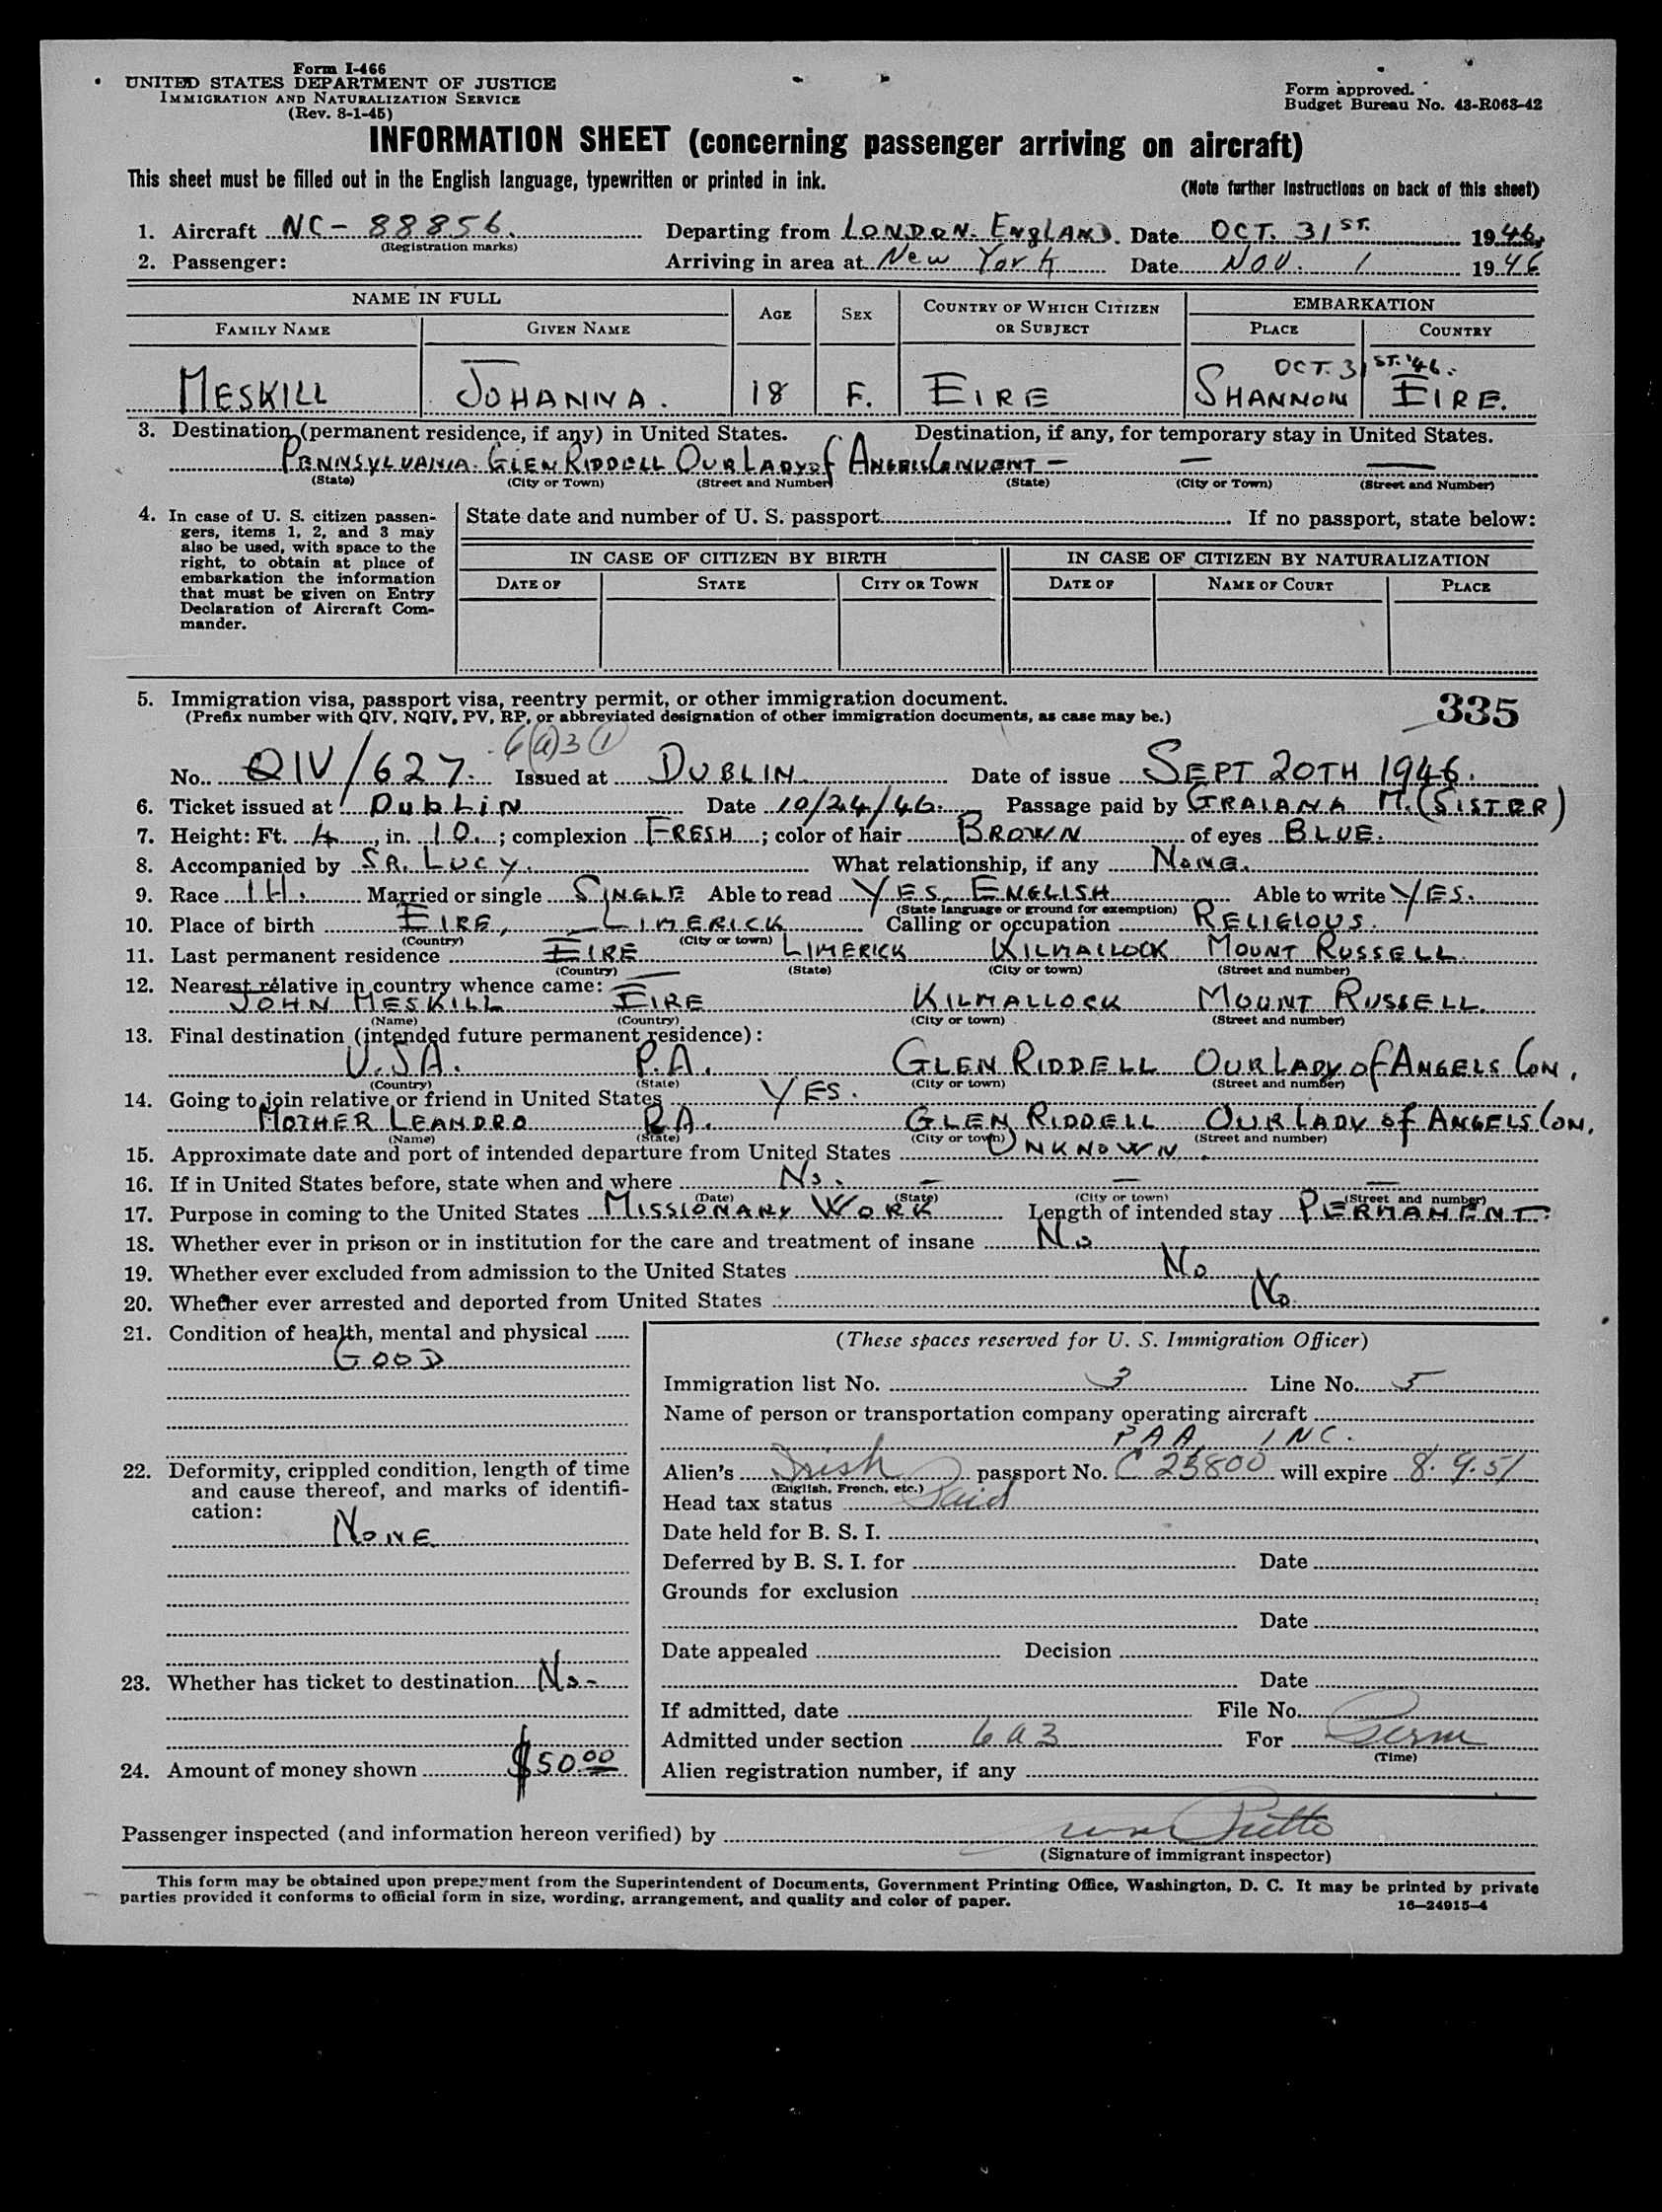 Form I-466
UNITED STATES DEPARTMENT OF JUSTICE
IMMIGRATION AND NATURALIZATION SERVICE
(Rev. 8-1-45)
Form approved.
Budget Bureau No. 43-R063-42
INFORMATION SHEET (concerning passenger arriving on aircraft)
This sheet must be filled out in the English language, typewritten or printed in ink.
(Note further instructions on back of this sheet)
1. Aircraft NC-88856. Departing from LONDON. ENGLAND. Date OCT. 31ST. 1946.
(Registration marks)
2. Passenger: Arriving in area at New York Date NOV. 1 1946
NAME IN FULL AGE SEX COUNTRY OF WHICH CITIZEN OR SUBJECT EMBARKATION
FAMILY NAME GIVEN NAME PLACE COUNTRY
OCT. 31ST. '46.
MESKILL JOHANNA. 18 F. EIRE SHANNON EIRE.
3. Destination (permanent residence, if any) in United States. Destination, if any, for temporary stay in United States.
PENNSYLVANIA. GLEN RIDDELL OUR LADY of ANGELS CONVENT — — —
(State) (City or Town) (Street and Number) (State) (City or Town) (Street and Number)
4. In case of U. S. citizen passen-
gers, items 1, 2, and 3 may
also be used, with space to the
right, to obtain at place of
embarkation the information
that must be given on Entry
Declaration of Aircraft Com-
mander.
State date and number of U. S. passport If no passport, state below:
IN CASE OF CITIZEN BY BIRTH IN CASE OF CITIZEN BY NATURALIZATION
DATE OF STATE CITY OR TOWN DATE OF NAME OF COURT PLACE
5. Immigration visa, passport visa, reentry permit, or other immigration document.
(Prefix number with QIV, NQIV, PV, RP, or abbreviated designation of other immigration documents, as case may be.)
335
6(a)3 (1)
No. QIV/627. Issued at DUBLIN Date of issue SEPT 20TH 1946.
6. Ticket issued at DUBLIN Date 10/24/46. Passage paid by GRAIANA M. (SISTER)
7. Height: Ft. 4, in. 10.; complexion FRESH; color of hair BROWN of eyes BLUE.
8. Accompanied by SR. LUCY. What relationship, if any NONE.
9. Race IH. Married or single SINGLE Able to read YES, ENGLISH Able to write YES.
(State language or ground for exemption)
10. Place of birth EIRE, LIMERICK Calling or occupation RELIGIOUS.
(Country) (City or town)
11. Last permanent residence EIRE LIMERICK KILMALLOCK MOUNT RUSSELL.
(Country) (State) (City or town) (Street and number)
12. Nearest relative in country whence came:
JOHN MESKILL EIRE KILMALLOCK MOUNT RUSSELL.
(Name) (Country) (City or town) (Street and number)
13. Final destination (intended future permanent residence):
U.S.A. P.A. GLEN RIDDELL OUR LADY of ANGELS CON.
(Country) (State) (City or town) (Street and number)
14. Going to join relative or friend in United States YES.
MOTHER LEANDRO P.A. GLEN RIDDELL OUR LADY of ANGELS CON.
(Name) (State) (City or town) (Street and number)
15. Approximate date and port of intended departure from United States UNKNOWN.
16. If in United States before, state when and where No. — — —
(Date) (State) (City or town) (Street and number)
17. Purpose in coming to the United States MISSIONARY WORK Length of intended stay PERMANENT.
18. Whether ever in prison or in institution for the care and treatment of insane No
19. Whether ever excluded from admission to the United States No
20. Whether ever arrested and deported from United States No.
21. Condition of health, mental and physical
GOOD
22. Deformity, crippled condition, length of time
and cause thereof, and marks of identifi-
cation:
NONE
23. Whether has ticket to destination No-
24. Amount of money shown $50.00
(These spaces reserved for U. S. Immigration Officer)
Immigration list No. 3 Line No. 5
Name of person or transportation company operating aircraft
PAA, INC.
Alien's Irish passport No. C 23800 will expire 8.9.51
(English, French, etc.)
Head tax status Paid
Date held for B. S. I.
Deferred by B. S. I. for Date
Grounds for exclusion
Date
Date appealed Decision
Date
If admitted, date File No.
Admitted under section 6a3 For Perm
(Time)
Alien registration number, if any
Passenger inspected (and information hereon verified) by
(Signature of immigrant inspector)
This form may be obtained upon prepayment from the Superintendent of Documents, Government Printing Office, Washington, D. C. It may be printed by private
parties provided it conforms to official form in size, wording, arrangement, and quality and color of paper.
16—24915-4